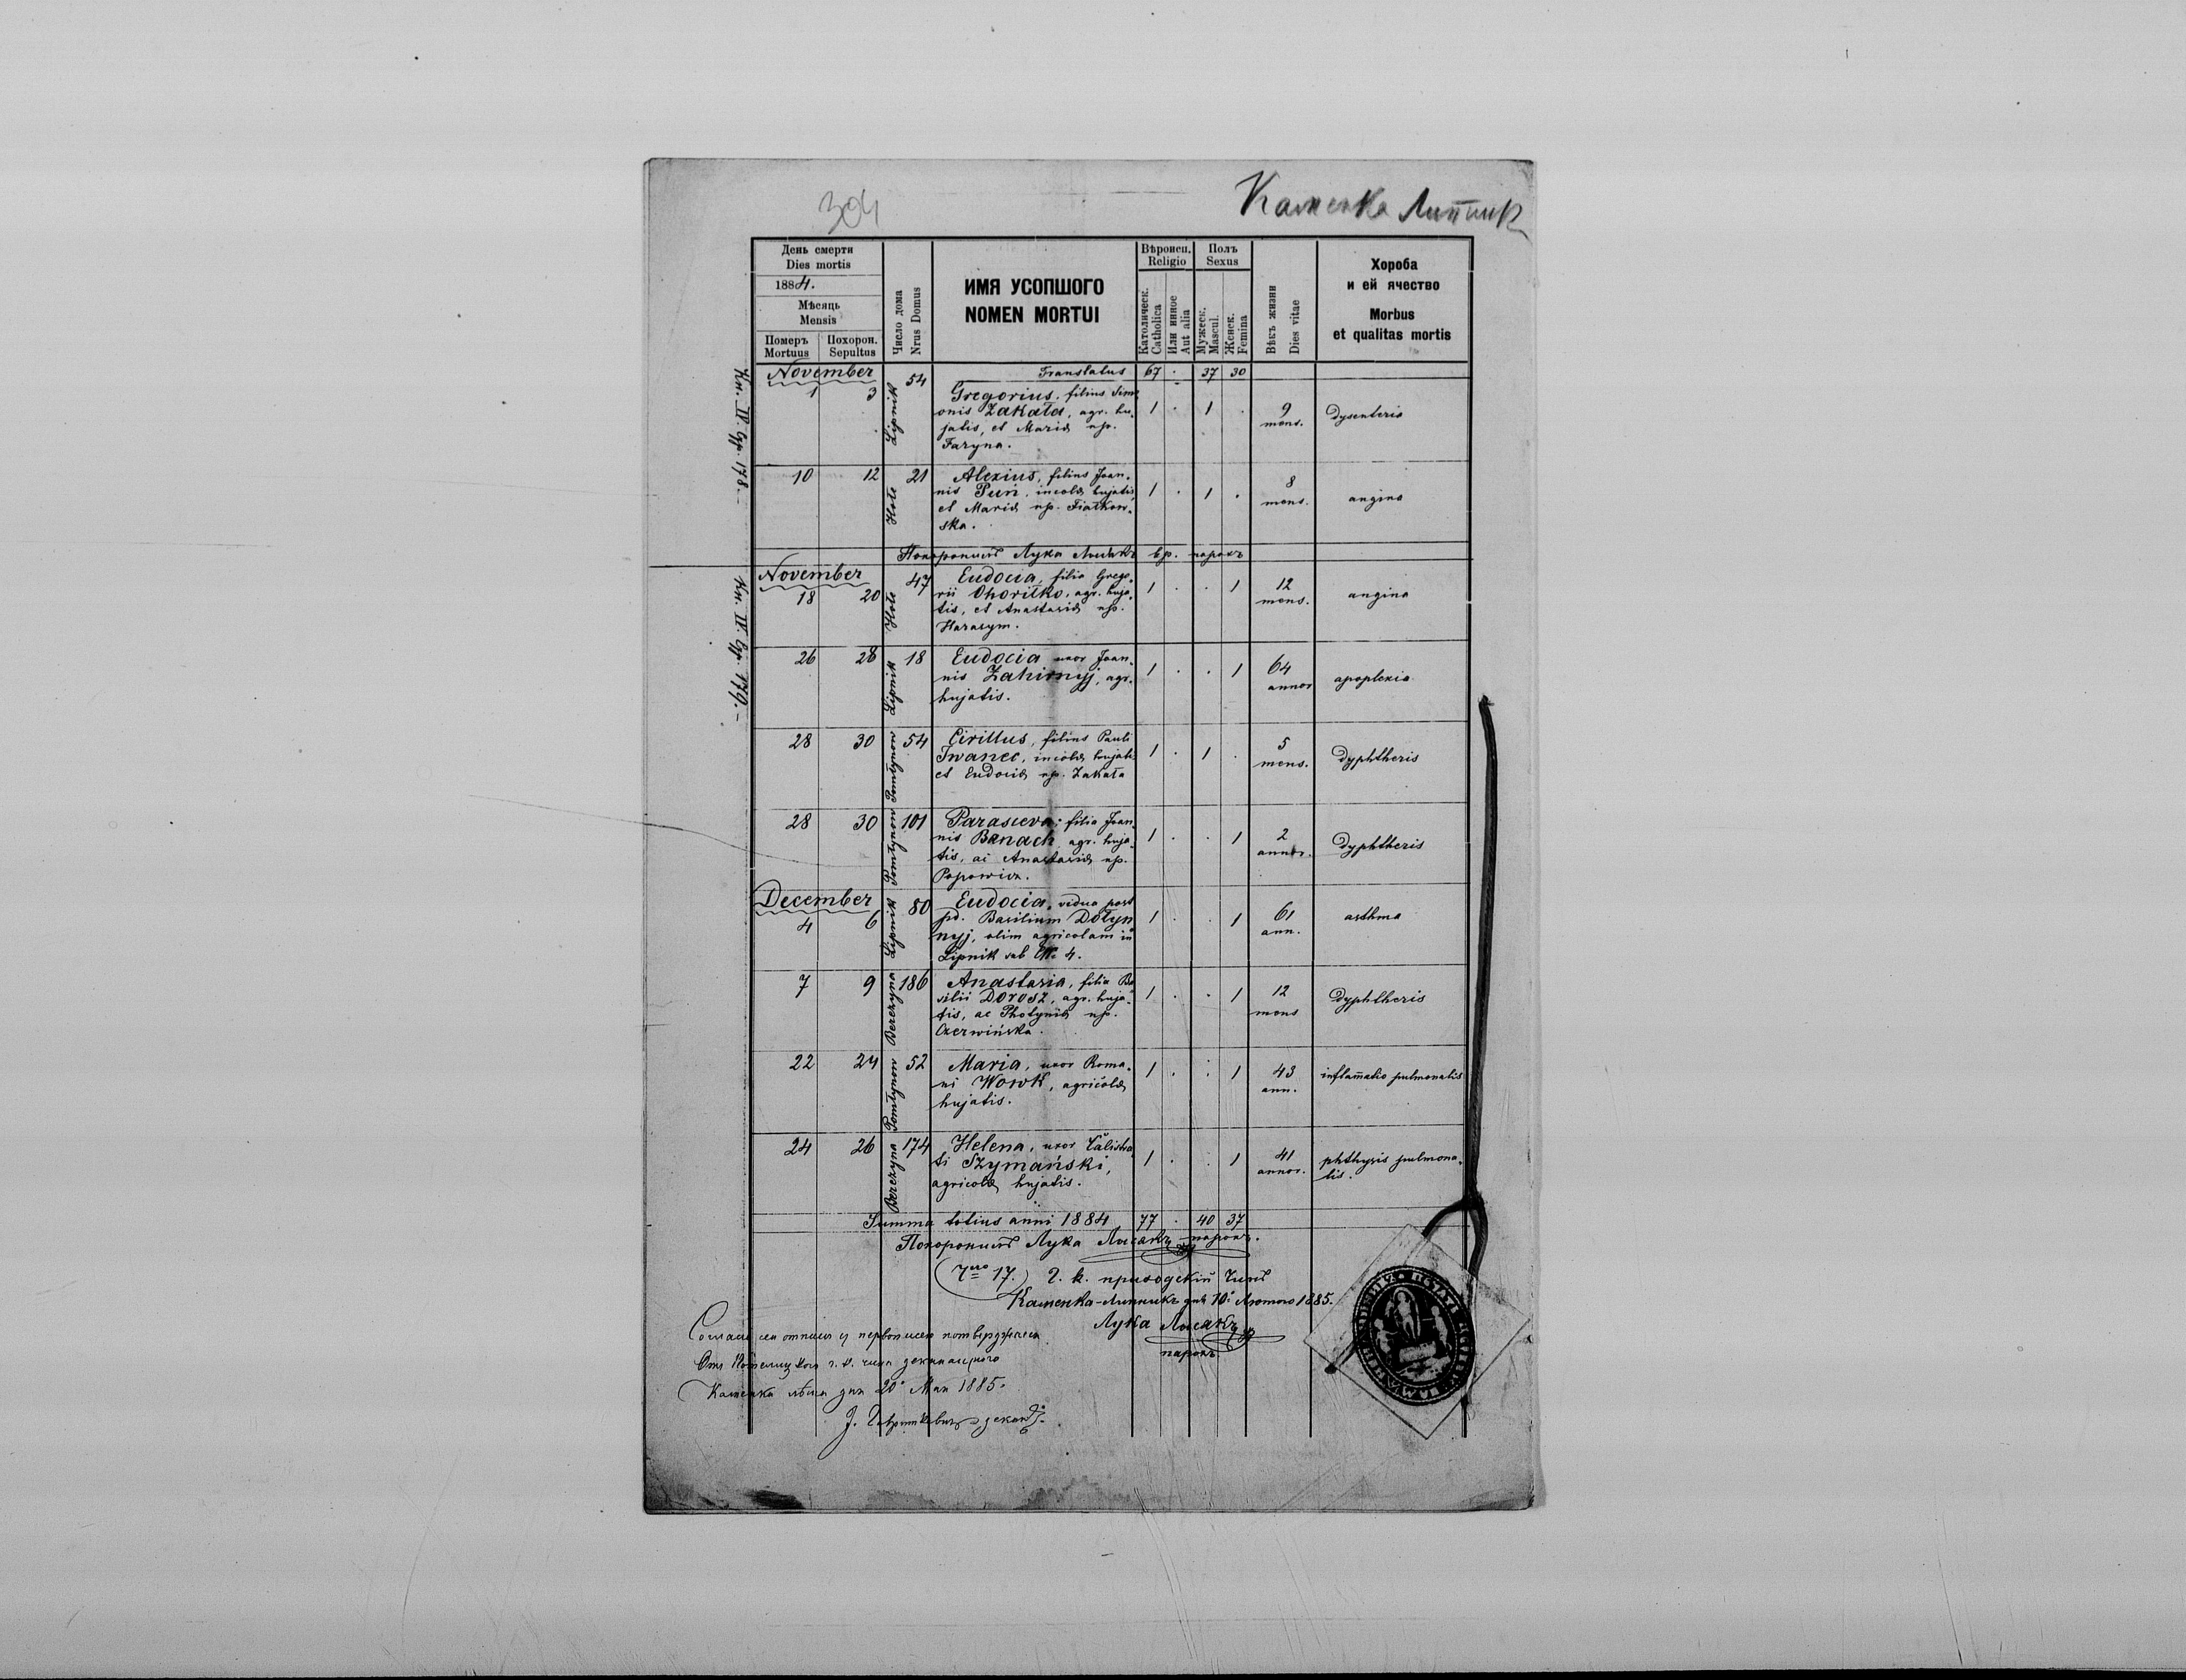 304
Каменка Липник
День смерти
Dies mortis
1884.
Мѣсяць
Mensis
Померъ Mortuus
Похорон. Sepultus
Число дома
Nrus Domus
ИМЯ УСОПШОГО
NOMEN MORTUI
Вѣроисп.
Religio
Католическ.
Catholica
Или инное
Aut alia
Полъ
Sexus
Мужеск.
Mascul.
Женск.
Femina
Вѣкъ жизни
Dies vitae
Хороба
и ей ячество
Morbus
et qualitas mortis
Кн. IV. стр. 178.–
November
Translatus 67 . 37 30
1 3 Lipnik 54
Gregorius, filius Sim-
onis Zakała, agr. hu-
jatis, et Mariæ np.
Faryna.
1 . 1 .
9 mens.
dysenteria
10 12 Hołe 21
Alexius, filius Joan-
nis Puń, incolæ hujatis
et Mariæ np. Fiałkow-
ska.
1 . 1 .
8 mens.
angina
Похоронилъ Лука Лысакъ вр. парохъ
Кн. IV. стр. 179.–
November
18 20 Hołe 47
Eudocia, filia Grego-
rii Ohoriłko, agr. huja-
tis, et Anastasiæ np.
Harasym.
1 . . 1
12 mens.
angina
26 28 Lipnik 18
Eudocia uxor Joan-
nis Zahirnyj, agr.
hujatis.
1 . . 1
64 annor
apoplexia
28 30 Pomłynow 54
Cirillus, filius Pauli
Iwanec, incolæ hujatis
et Eudociæ np. Zakała
1 . 1 .
5 mens.
dyphtheris
28 30 Pomłynow 101
Parasceva, filia Joan-
nis Banach agr. huja-
tis, ac Anastasiæ np.
Popowicz.
1 . . 1
2 annor.
dyphtheris
December
4 6 Lipnik 80
Eudocia, vidua post
pd. Basilium Dołyn
nyj, olim agricolam in
Lipnik sub № 4.
1 . . 1
61 ann.
asthma
7 9 Berezyna 186
Anastasia, filia Ba
silii Dorosz, agr. huja-
tis, ac Photyniæ np.
Czerwińska.
1 . . 1
12 mens
dyphtheris
22 24 Pomłynow 52
Maria, uxor Roma-
ni Wowk, agricolæ
hujatis.
1 . . 1
43 ann.
inflamatio pulmonalis
24 26 Berezyna 174
Helena, uxor Calistra
ti Szymański,
agricolæ hujatis.
1 . . 1
41 annor.
phthysis pulmona-
lis.
Summa totius anni 1884 77 . 40 37
Похоронилъ Лука Лысакъ парохъ.
Чсло 17. Г. к. приходскій чинъ
Каменка-Липникъ дня 10. Лютого 1885.
Лука Лысакъ
парохъ
Каменка лѣсна дня 20. Мая 1885.